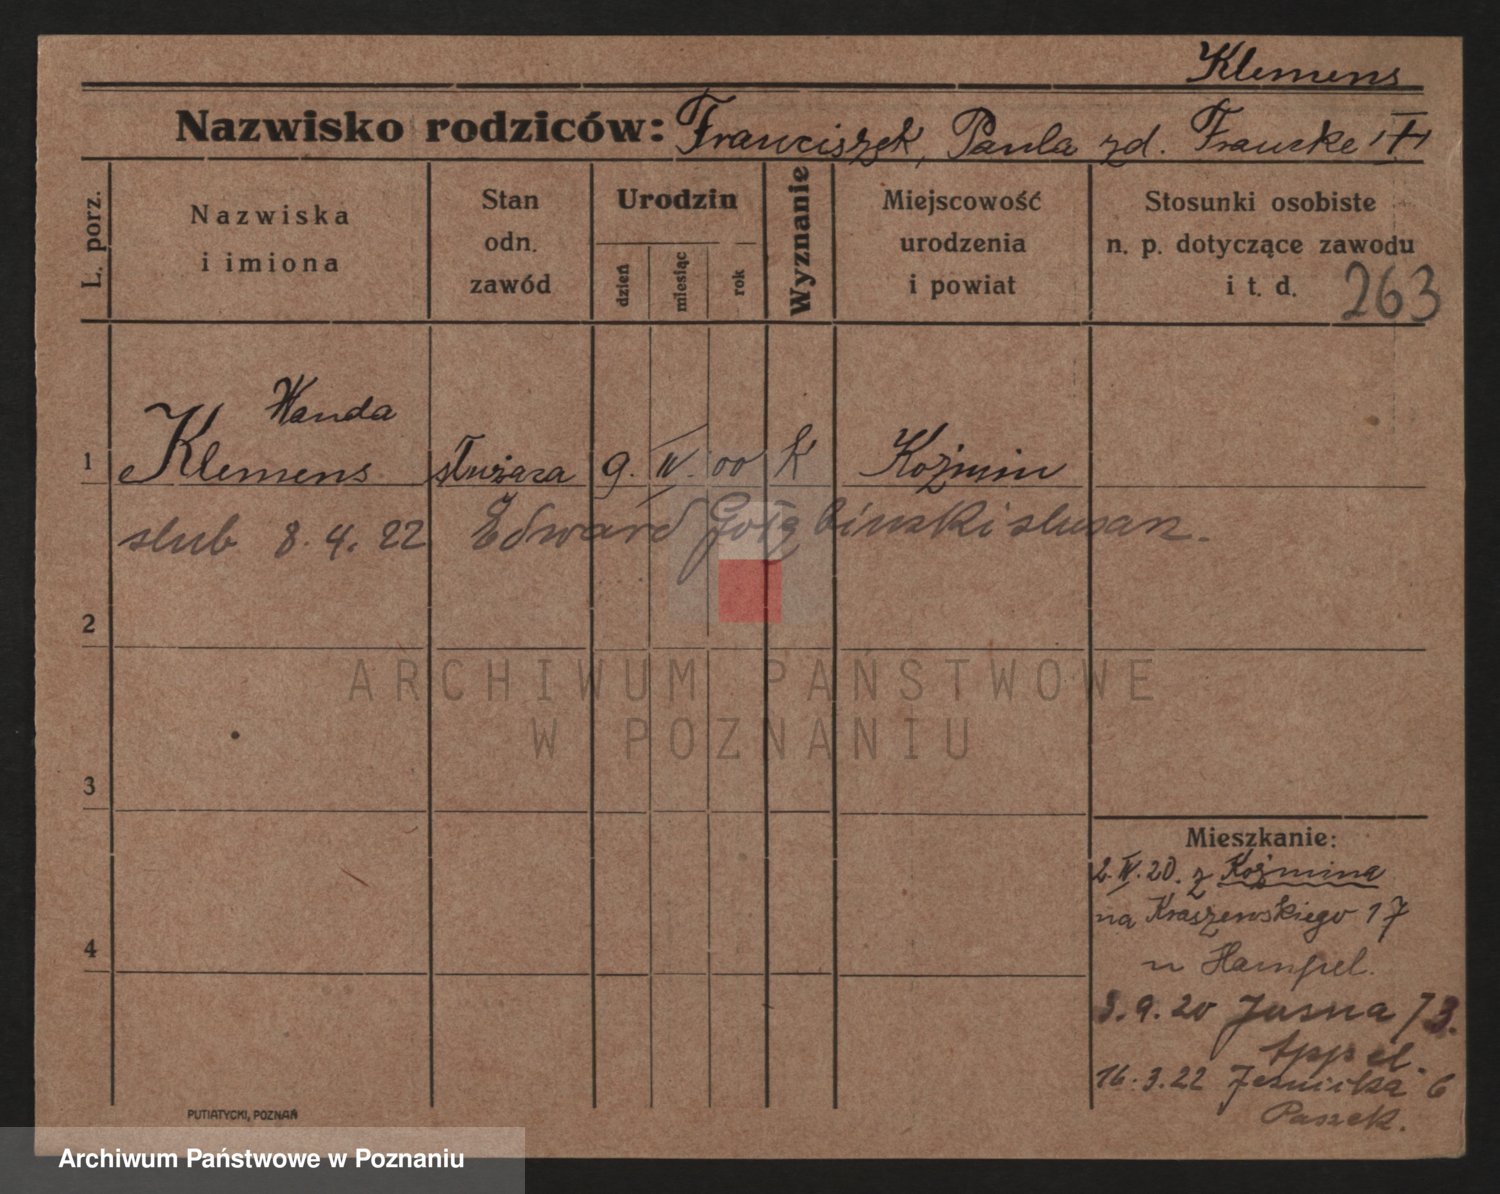 Klemens
Nazwisko rodziców: Franciszek, Paula zd. Francke
L. porz.
Nazwiska i imiona
Stan odn. zawód
Urodzin
dzień
miesiąc
rok
Wyznanie
Miejscowość urodzenia i powiat
Stosunki osobiste n. p. dotyczące zawodu i t. d.
263
Wanda
1 Klemens służąca 9. IV. 00 K Koźmin
slub 8.4.22 Edward Gołębinski slusarz.
2
3
4
Mieszkanie:
2.IV.20. z Koźmina
na Kraszewskiego 17
u Hampel.
3.9.20 Jasna 13.
Appel.
16.3.22
6
Paszek.
PUTIATYCKI, POZNAŃ
ARCHIWUM PAŃSTWOWE
W POZNANIU
Archiwum Państwowe w Poznaniu